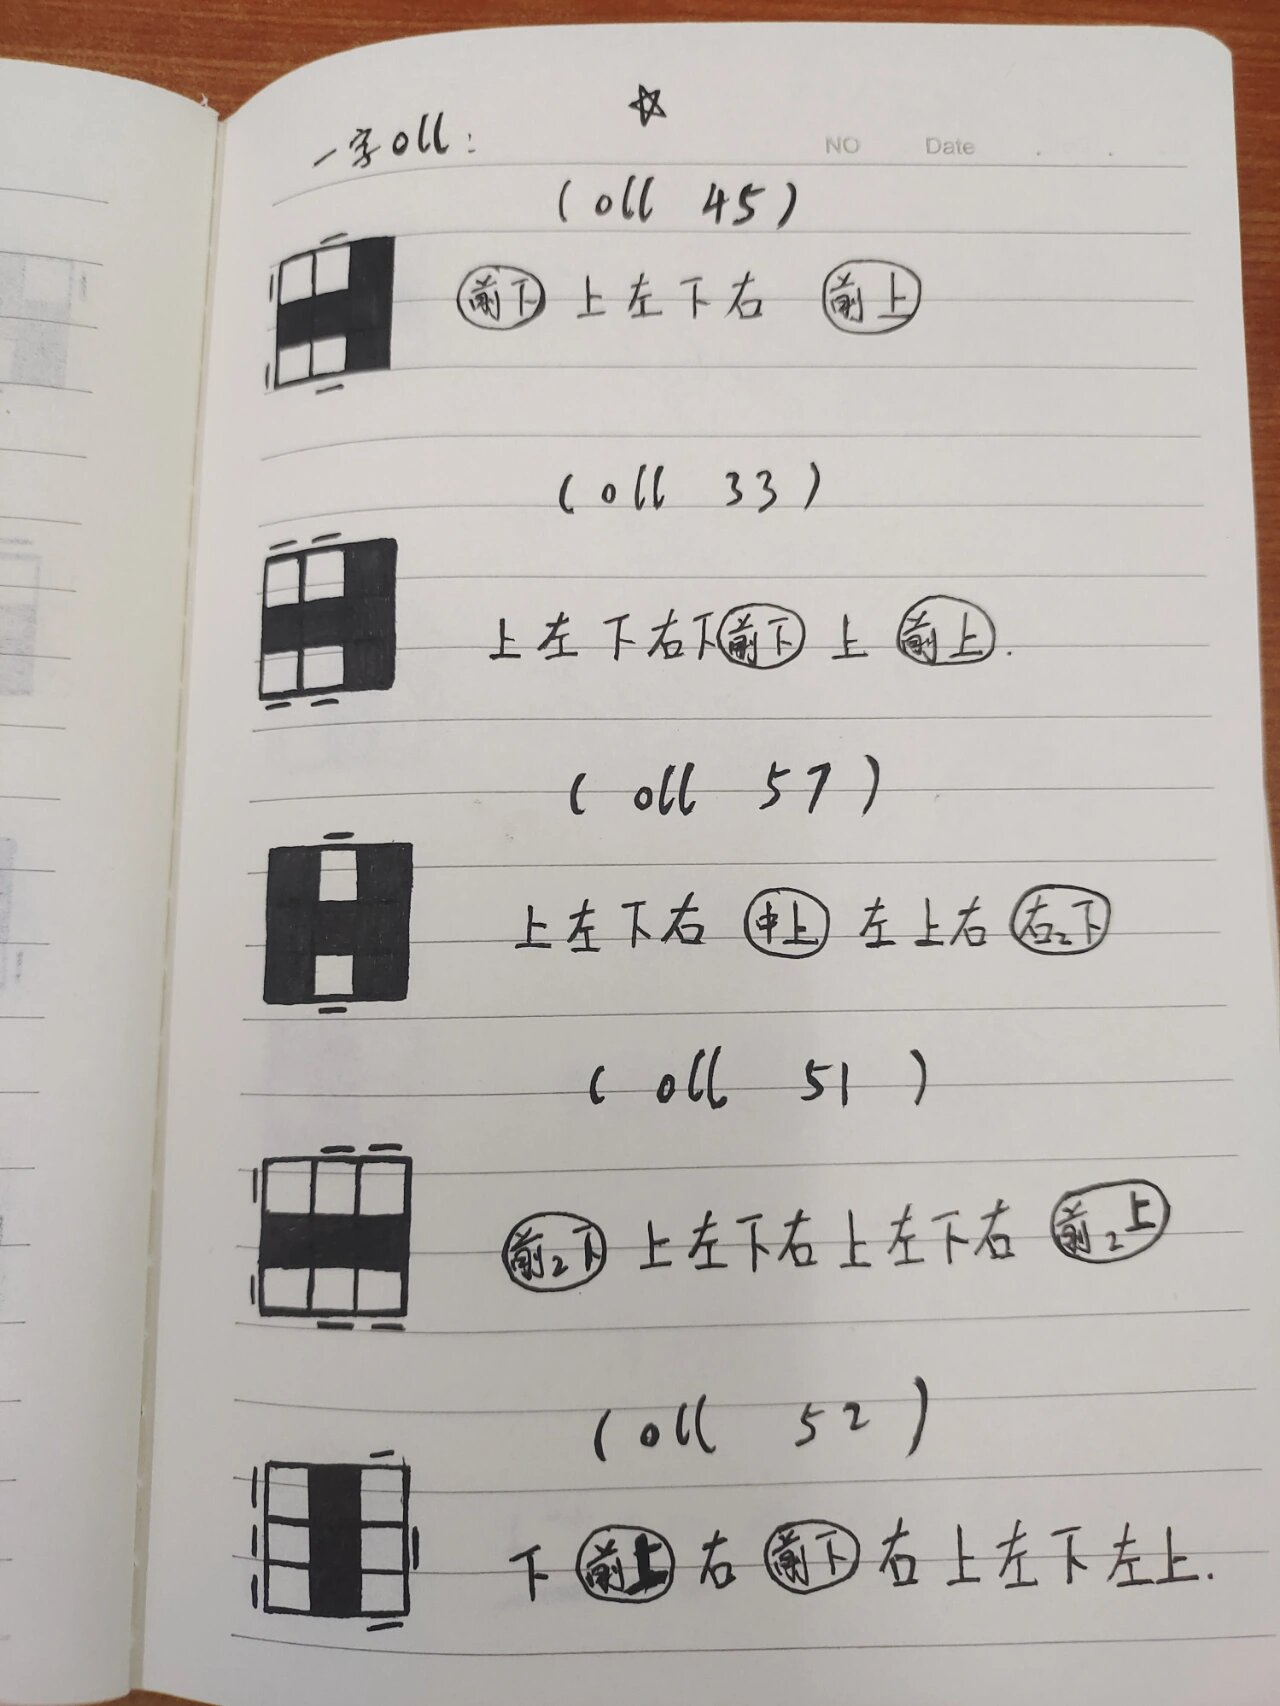 一字oll:
☆
NO Date . .
(oll 45)
前下 上左下右 前上
(oll 33)
上左下右下 前下 上 前上.
(oll 57)
上左下右 中上 左上右 右₂下
(oll 51)
前₂下 上左下右上左下右 前₂上
(oll 52)
下 前上 右 前下 右上左下左上.